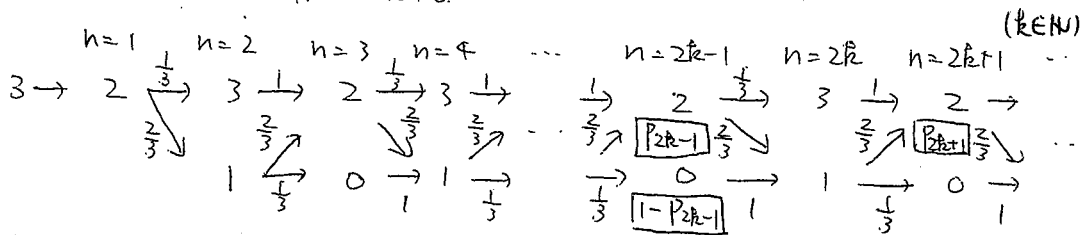 (k∈N)
n=1 n=2 n=3 n=4 ... n=2k-1 n=2k n=2k+1 ...
3 → 2 →(1/3) 3 →(1) 2 →(1/3) 3 →(1) →(1) 2 →(1/3) 3 →(1) 2 →
2/3 ↘ 2/3 ↗ 2/3 ↘ 2/3 ↗ ... 2/3 ↗ P_{2k-1} 2/3 ↘ 2/3 ↗ P_{2k+1} 2/3 ↘ ...
1 →(1/3) 0 →(1) 1 →(1/3) →(1/3) 0 →(1) 1 →(1/3) 0 →(1)
1-P_{2k-1}